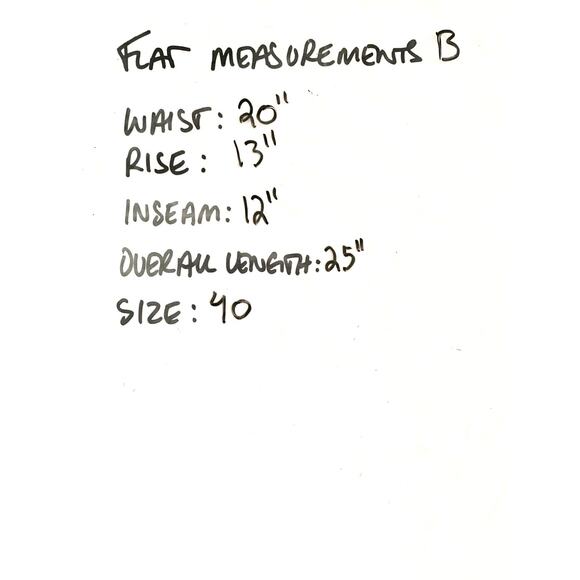 FLAT MEASUREMENTS B
WAIST: 20"
RISE: 13"
INSEAM: 12"
OVERALL LENGTH: 25"
SIZE: 40